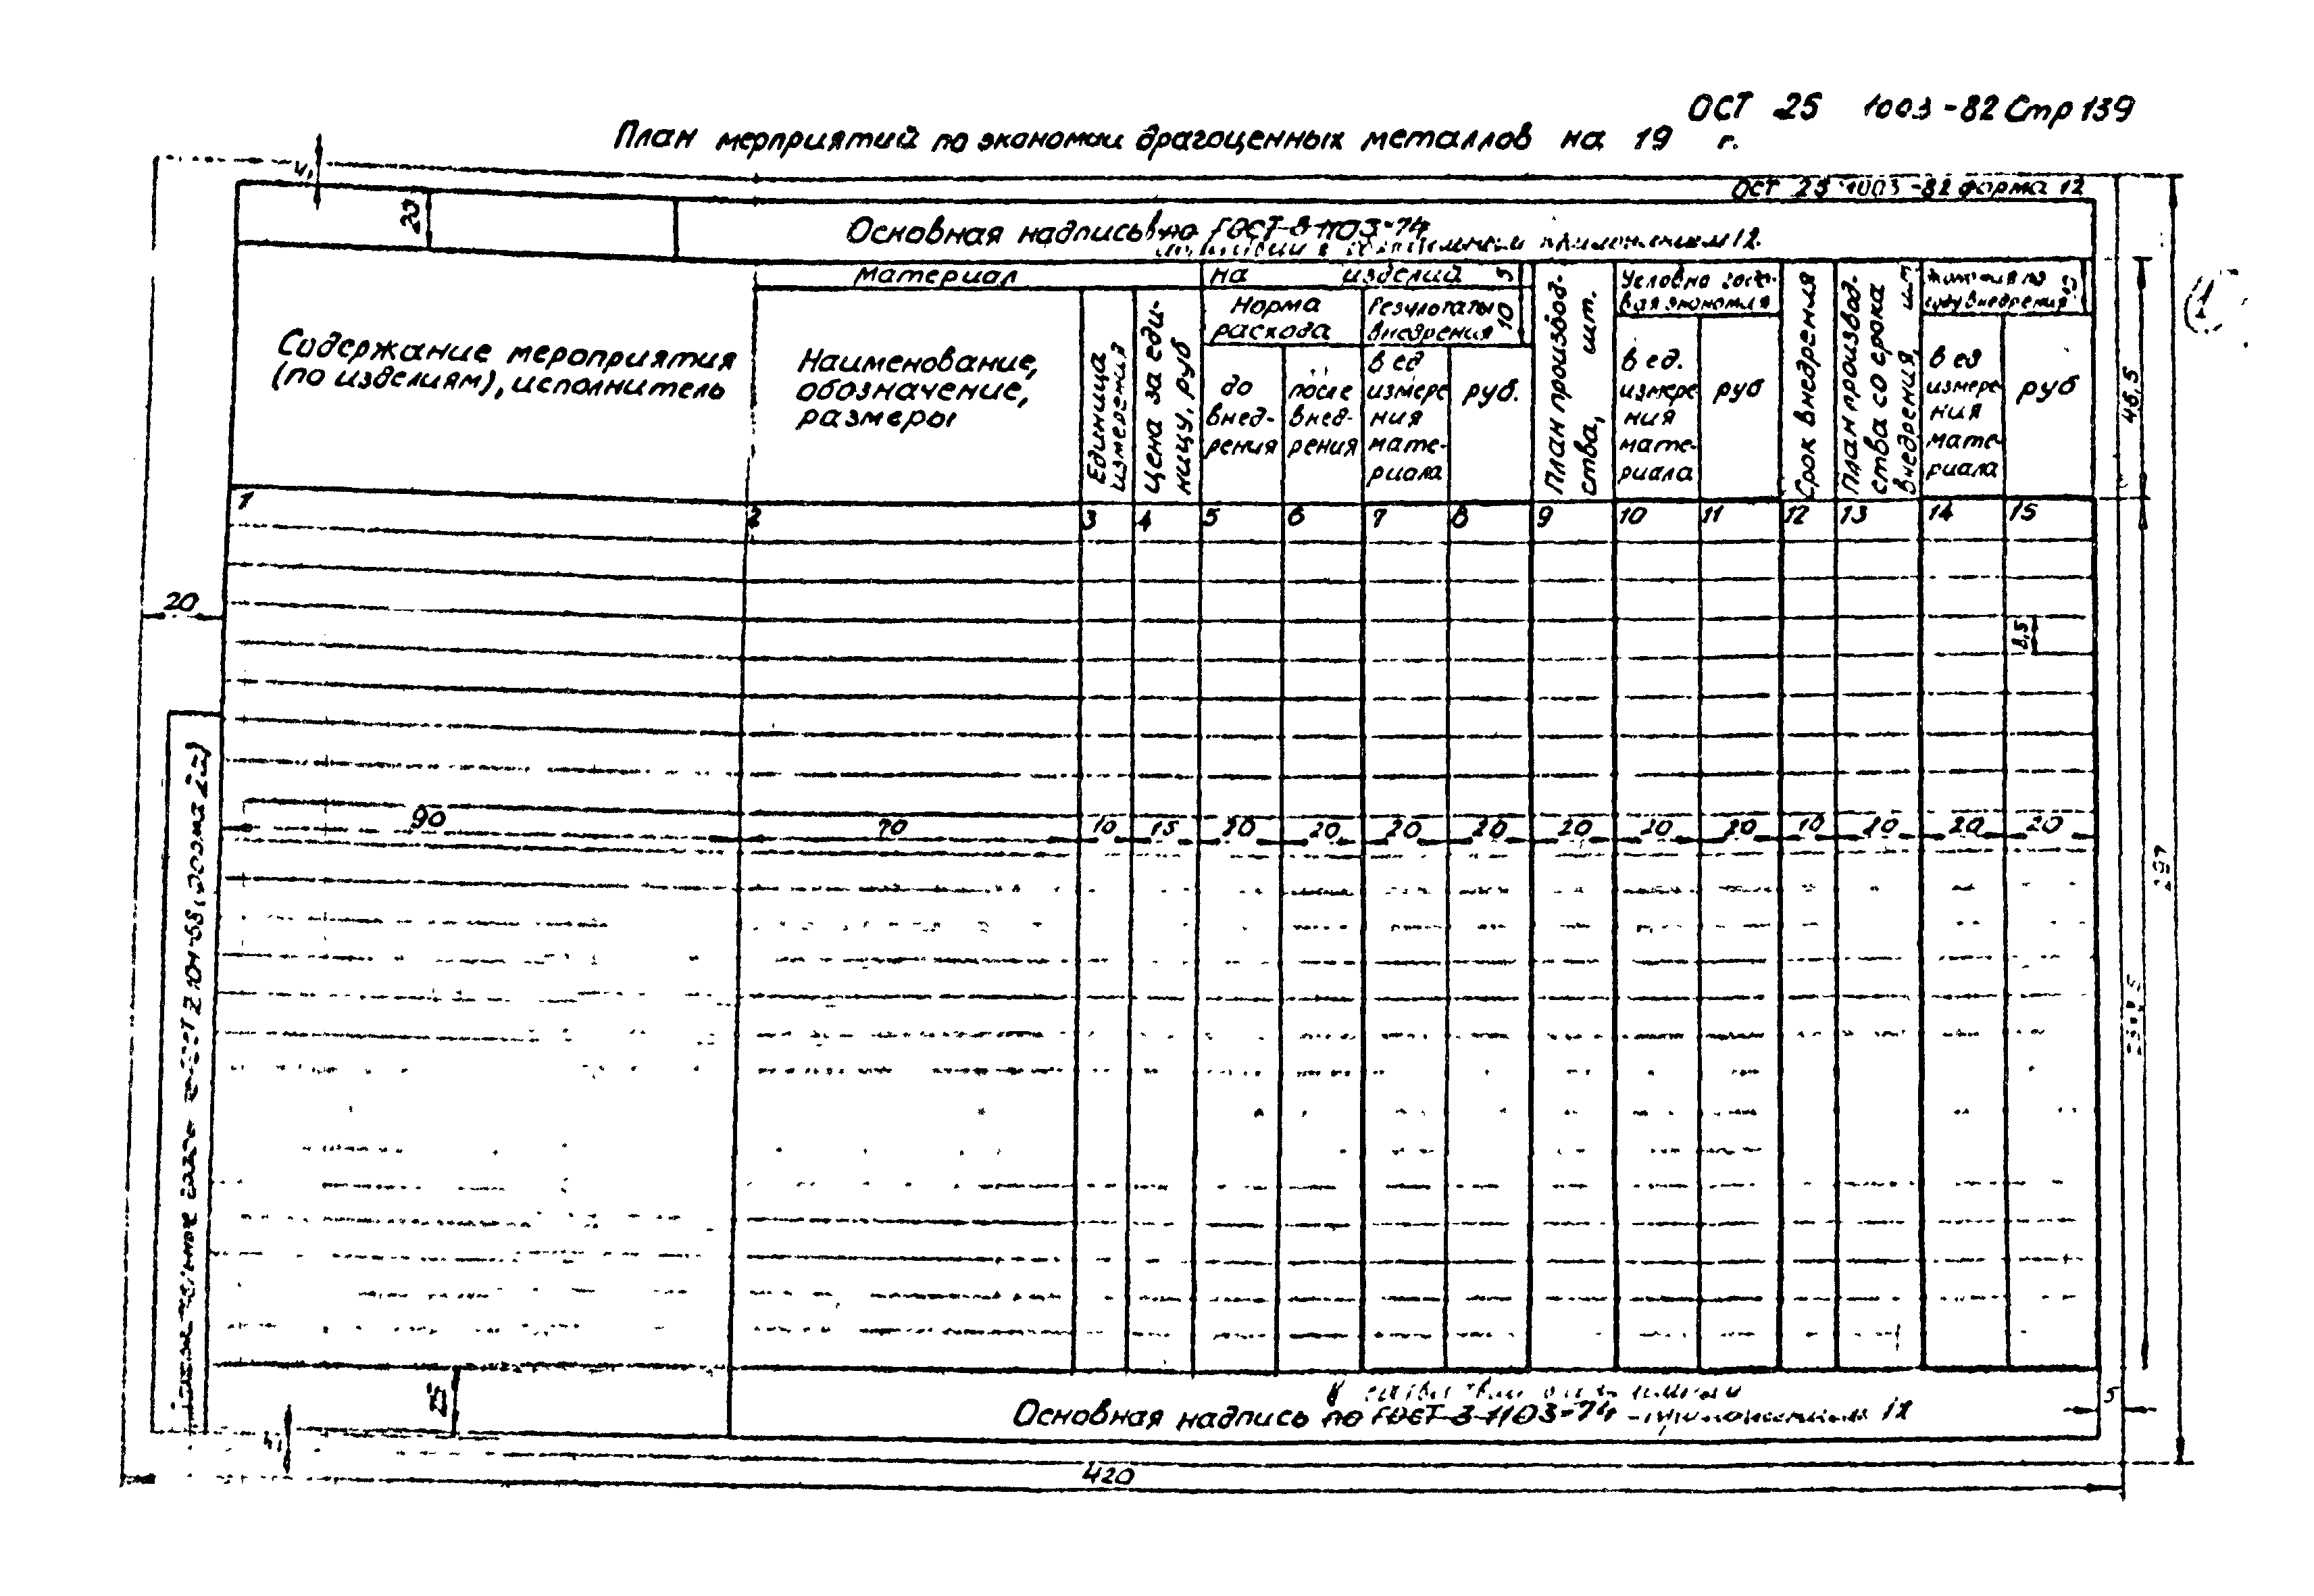 ОСТ 25 1003-82 Стр 139
План мероприятий по экономии драгоценных металлов на 19 г.
ОСТ 25 1003-82 форма 12
4,
20
Основная надпись в по ГОСТ 3 1103-74
приложением 12.
Содержание мероприятия
(по изделиям), исполнитель
Материал
Наименование,
обозначение,
размеры
Единица
измерения
Цена за еди-
ницу, руб
на изделий
5
Норма
расхода
до
внед-
рения
после
внед-
рения
Результаты
внедрения
10
в ед
измере
ния
мате-
риала
руб.
План производ-
ства, шт.
Условно годо-
вая экономия
в ед.
измере
ния
мате-
риала
руб
Срок внедрения
План производ-
ства со срока
внедрения, шт
Экономия по
году внедрения
15
в ед
измере
ния
мате-
риала
руб
46,5
1 2 3 4 5 6 7 8 9 10 11 12 13 14 15
20
8,5
90 70 10 15 20 20 20 20 20 20 20 10 20 20 20
297
25
в соответствии
Основная надпись по ГОСТ 3 1103-74 приложением 12
5
420